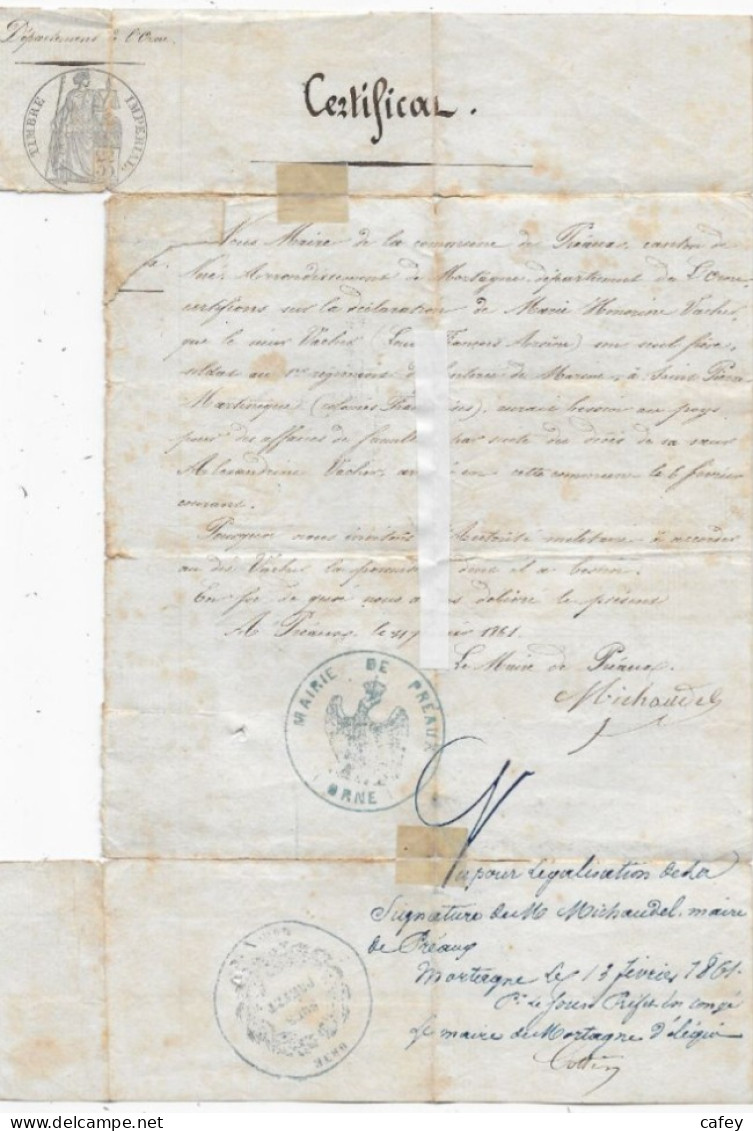 Département de l'Orne.
TIMBRE IMPÉRIAL
Certificat.
Nous Maire de la commune de Préaux canton de
Nocé, Arrondissement de Mortagne, département de L'Orne
certifions sur la déclaration de Marie Honorine Vacher
que le sieur Vacher (Louis François Arsène) son seul frère,
soldat au 1er régiment d'Infanterie de Marine, à Saint Pierre
Martinique (colonies Françaises), aurait besoin au pays
pour des affaires de famille par suite du décès de sa sœur
Alexandrine Vacher, en cette commune le 6 février
courant.
Pourquoi nous invitons l'Autorité militaire à accorder
au dit Vacher la dont il a besoin.
En foi de quoi nous avons délivré le présent
A Préaux, le 1861.
Le Maire de Préaux.
Michaudel
MAIRIE DE PRÉAUX
ORNE
Vu pour Légalisation de la
Signature de M Michaudel, maire
de Préaux
Mortagne le 13 février 1861.
Pr Le Sous Préfet en congé
Le maire de Mortagne délégué
ORNE
cafey